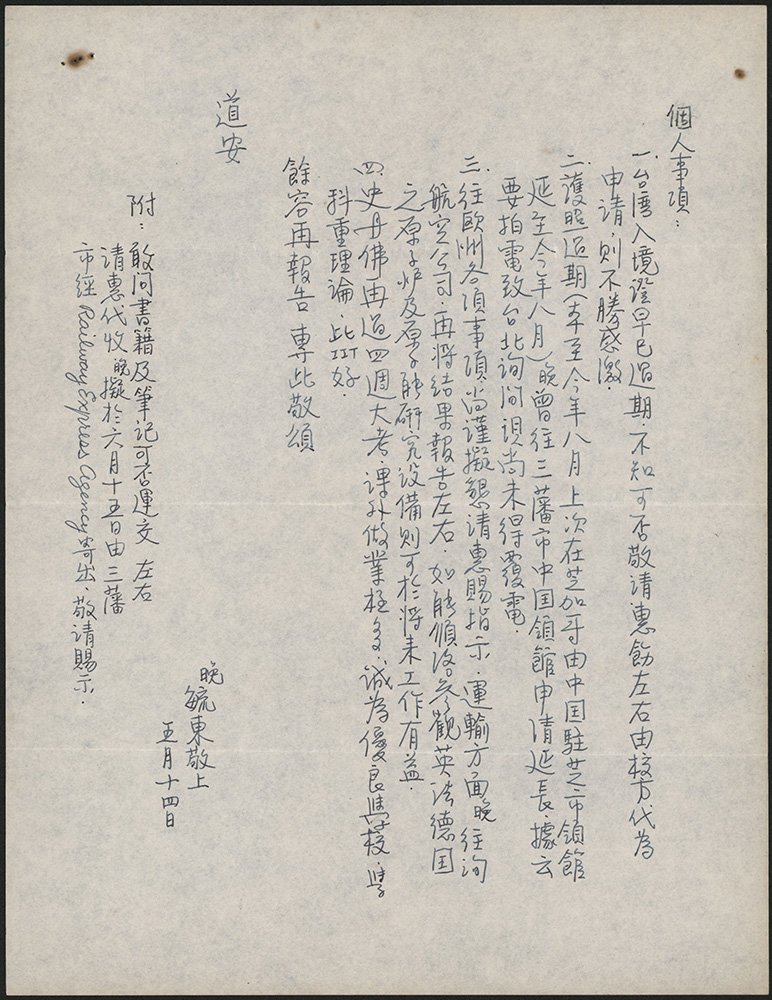 個人事項：
一.台湾入境證早已过期.不知可否敬請惠飭左右由校方代為
申请,则不勝感激.
二.護照过期(本至今年八月上次在芝加哥由中国駐芝市領館
延至今年八月)晚曾往三藩市中国領館申请延長.據云
要拍電致台北詢问现尚未得覆電.
三.往欧州各項事項尚谨擬懇请惠賜指示.運输方面晚往洵
航空公司.再将结果報告左右.如能頒洛参觀英法德国
之原子炉及原子能研究设備则可於将来工作有益.
四.史丹佛再过四週大考.课外做業極多.诚為優良學校.學
科重理論.此訂好.
餘容再報告 專此敬頌
道安
晚
毓東敬上
五月十四日
附：敢问書籍及筆记可否運交 左右
请惠代收晚擬於六月十五日由三藩
市經 Railway Express Agency寄出.敬请賜示.